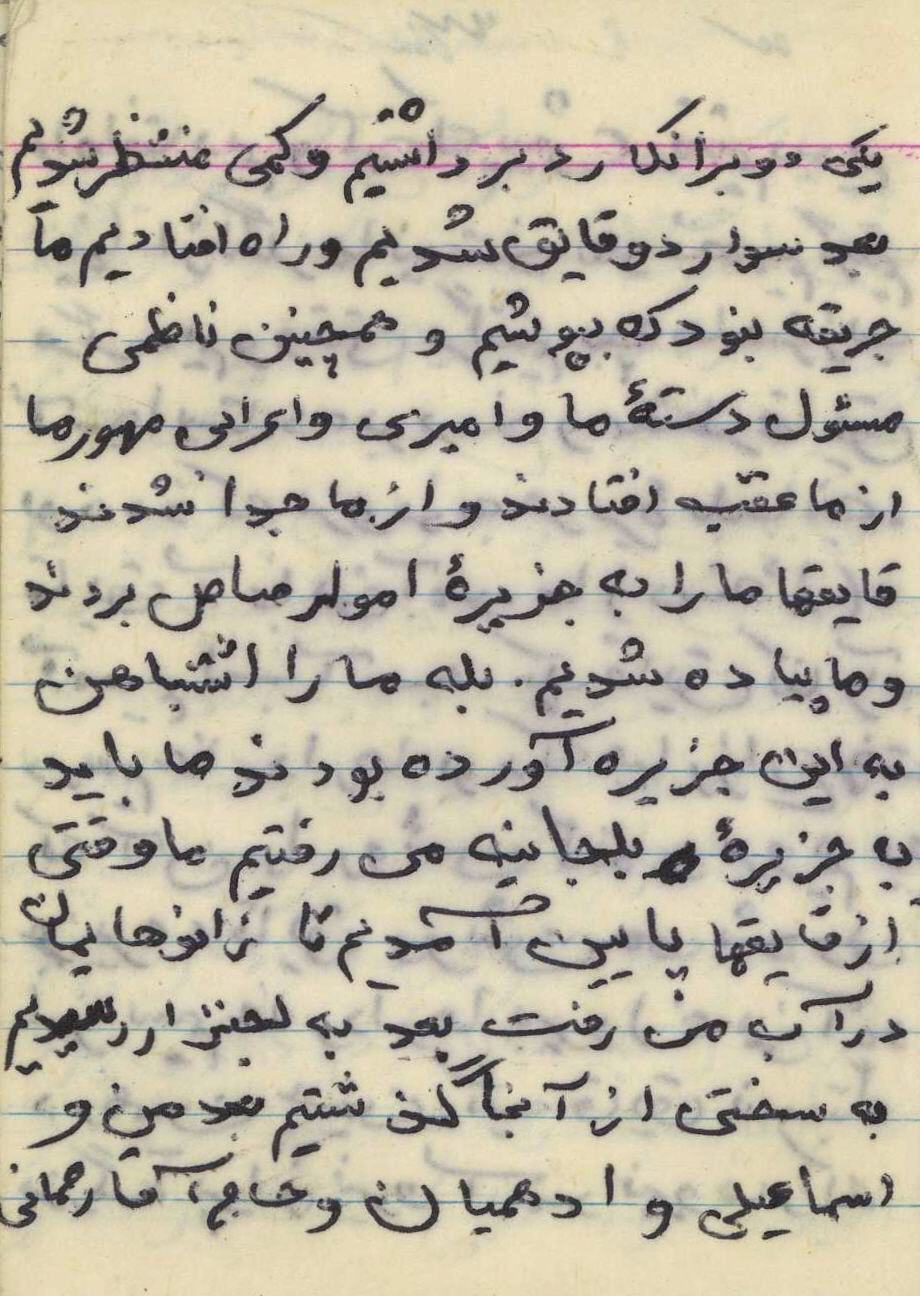 یکی دو برانکارد برداشتیم و کمی منتظر شدیم
بعد سوار دو قایق شدیم و راه افتادیم ما
جریقه بنود که بپوشیم و همچنین ناظمی
مسئول دستهٔ ما و امیری و اعرابی مهور ما
از ما عقب افتادند و از ما جدا نشدند
قایقها ما را به جزیرهٔ امولرصاص بردند
و ما پیاده شدیم. بله ما را اشتباهن
به این جزیره آورده بودند ما باید
به جزیرهٔ بلجانیه می رفتیم ما وقتی
از قایقها پایین آمدیم تا زانوهایمان
در آب می رفت بعد به لجنزار رسیدیم
به سختی از آنجا گذشتیم بعد من و
اسماعیلی و ادهمیان و حاج آقا رحمانی